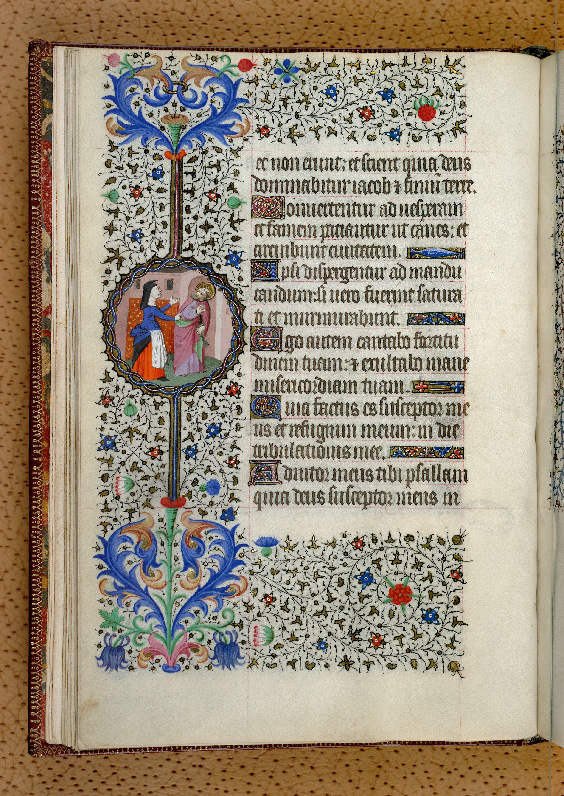 et non erunt: et scient quia deus
dominabitur iacob & finium terre.
Convertentur ad vesperam
et famem patiantur ut canes: et
circuibunt civitatem.
Ipsi dispergentur ad mandu
candum: si vero fuerint satura
ti et murmurabunt.
Ego autem cantabo fortitu
dinem tuam: & exultabo mane
misericordiam tuam.
Quia factus es susceptor me
us et refugium meum: in die
tribulationis mee.
Adiutor meus tibi psallam
quia deus susceptor meus m